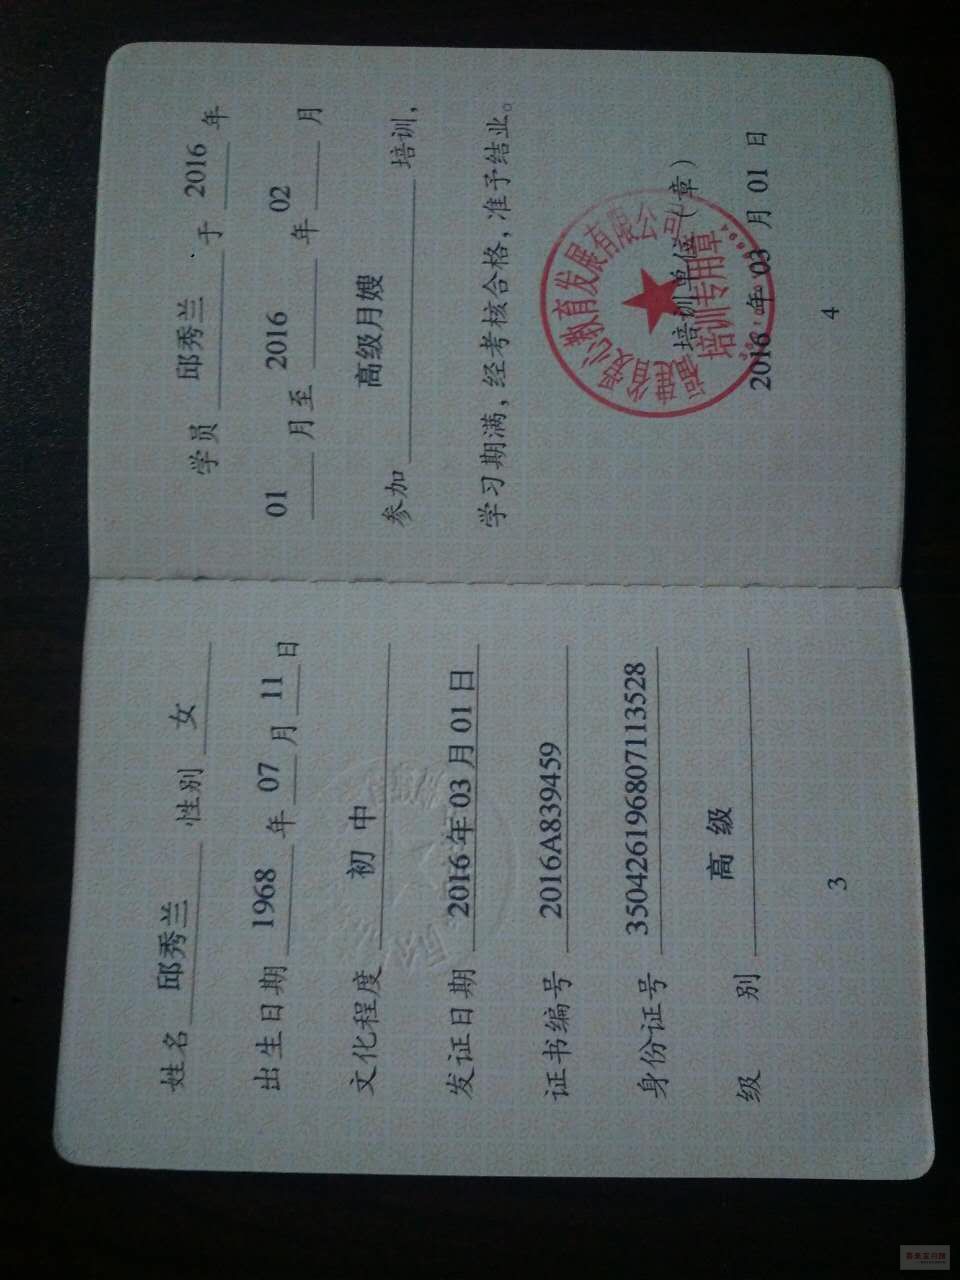 姓名 邱秀兰 性别 女
出生日期 1968 年 07 月 11 日
文化程度 初中
发证日期 2016年03月01日
证书编号 2016A839459
身份证号 350426196807113528
级别 高级
3
学员 邱秀兰 于 2016 年
01 月至 2016 年 02 月
参加 高级月嫂 培训，
学习期满，经考核合格，准予结业。
教育发展有限公司
培训专用章
培训单位（章）
2016 年 03 月 01 日
4